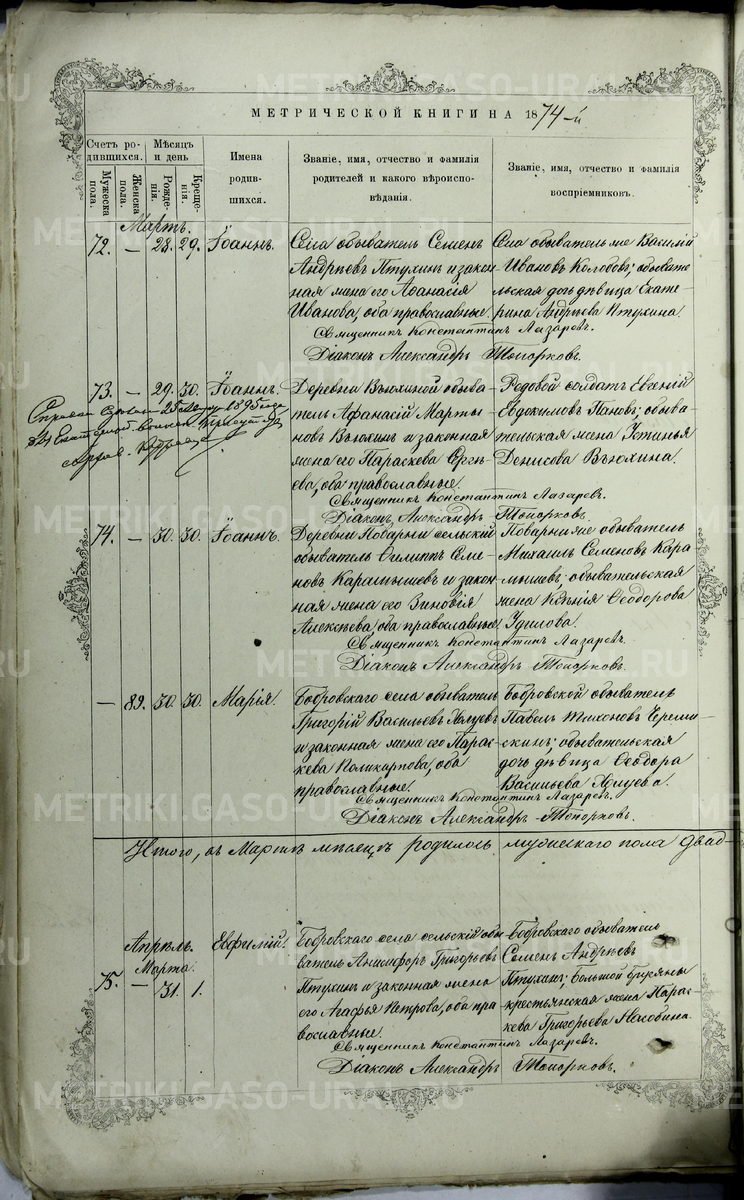 МЕТРИЧЕСКОЙ КНИГИ НА 1874-й
Счетъ родившихся.
Мѣсяцъ и день
Имена родившихся.
Званіе, имя, отчество и фамилія родителей и какого вѣроисповѣданія.
Званіе, имя, отчество и фамилія воспріемниковъ.
Мужеска пола.
Женска пола.
Рожденія.
Крещенія.
Мартъ.
72. — 28. 29. Іоаннъ.
Села обыватель Семенъ
Андрѣевъ Птухинъ и закон-
ная жена его Аѳанасія
Иванова, оба православные.
Села обыватель же Василій
Ивановъ Колобовъ; обывате-
льская дочь дѣвица Екате-
рина Андрѣева Птухина.
Священникъ Константинъ Лазаревъ.
Діаконъ Александръ Топорковъ.
73. — 29. 30. Іоаннъ.
Деревни Вьюхиной обыва-
тель Афанасій Марты-
новъ Вьюхинъ и законная
жена его Параскева Сергѣ-
ева, оба православные.
Рядовой солдатъ Евгеній
Евдокимовъ Пановъ; обыва-
тельская жена Устинья
Денисова Вьюхина.
1895 года
Священникъ Константинъ Лазаревъ.
Діаконъ Александръ Топорковъ.
74. — 30. 30. Іоаннъ.
Деревни Поварни сельскій
обыватель Филиппъ Семе-
новъ Карамышевъ и закон-
ная жена его Зиновія
Алексѣева, оба православные.
Поварни же обыватель
Михаилъ Семеновъ Кара-
мышевъ; обывательская
жена Ксенія Ѳеодорова
Удилова.
Священникъ Константинъ Лазаревъ.
Діаконъ Александръ Топорковъ.
— 89. 30. 30. Марія.
Бобровскаго села обыватель
Григорій Васильевъ Халуевъ
и законная жена его Парас-
кева Поликарпова, оба
православные.
Бобровской обыватель
Павелъ Тихоновъ Череми-
скинъ; обывательская
дочь дѣвица Ѳеодора
Васильева Халуева.
Священникъ Константинъ Лазаревъ.
Діаконъ Александръ Топорковъ.
Итого, въ Мартѣ мѣсяцѣ родилось мужескаго пола двад-
Апрѣль.
Марта.
75. — 31. 1. Евфимій.
Бобровскаго села сельскій обы-
ватель Анисифоръ Григорьевъ
Птухинъ и законная жена
его Агафья Петрова, оба пра-
вославные.
Бобровскаго обыватель
Семенъ Андрѣевъ
Птухинъ; Большой
крестьянская жена Парас-
кева Григорьева
Священникъ Константинъ Лазаревъ.
Діаконъ Александръ Топорковъ.
METRIKI.GASO-URAL.RU